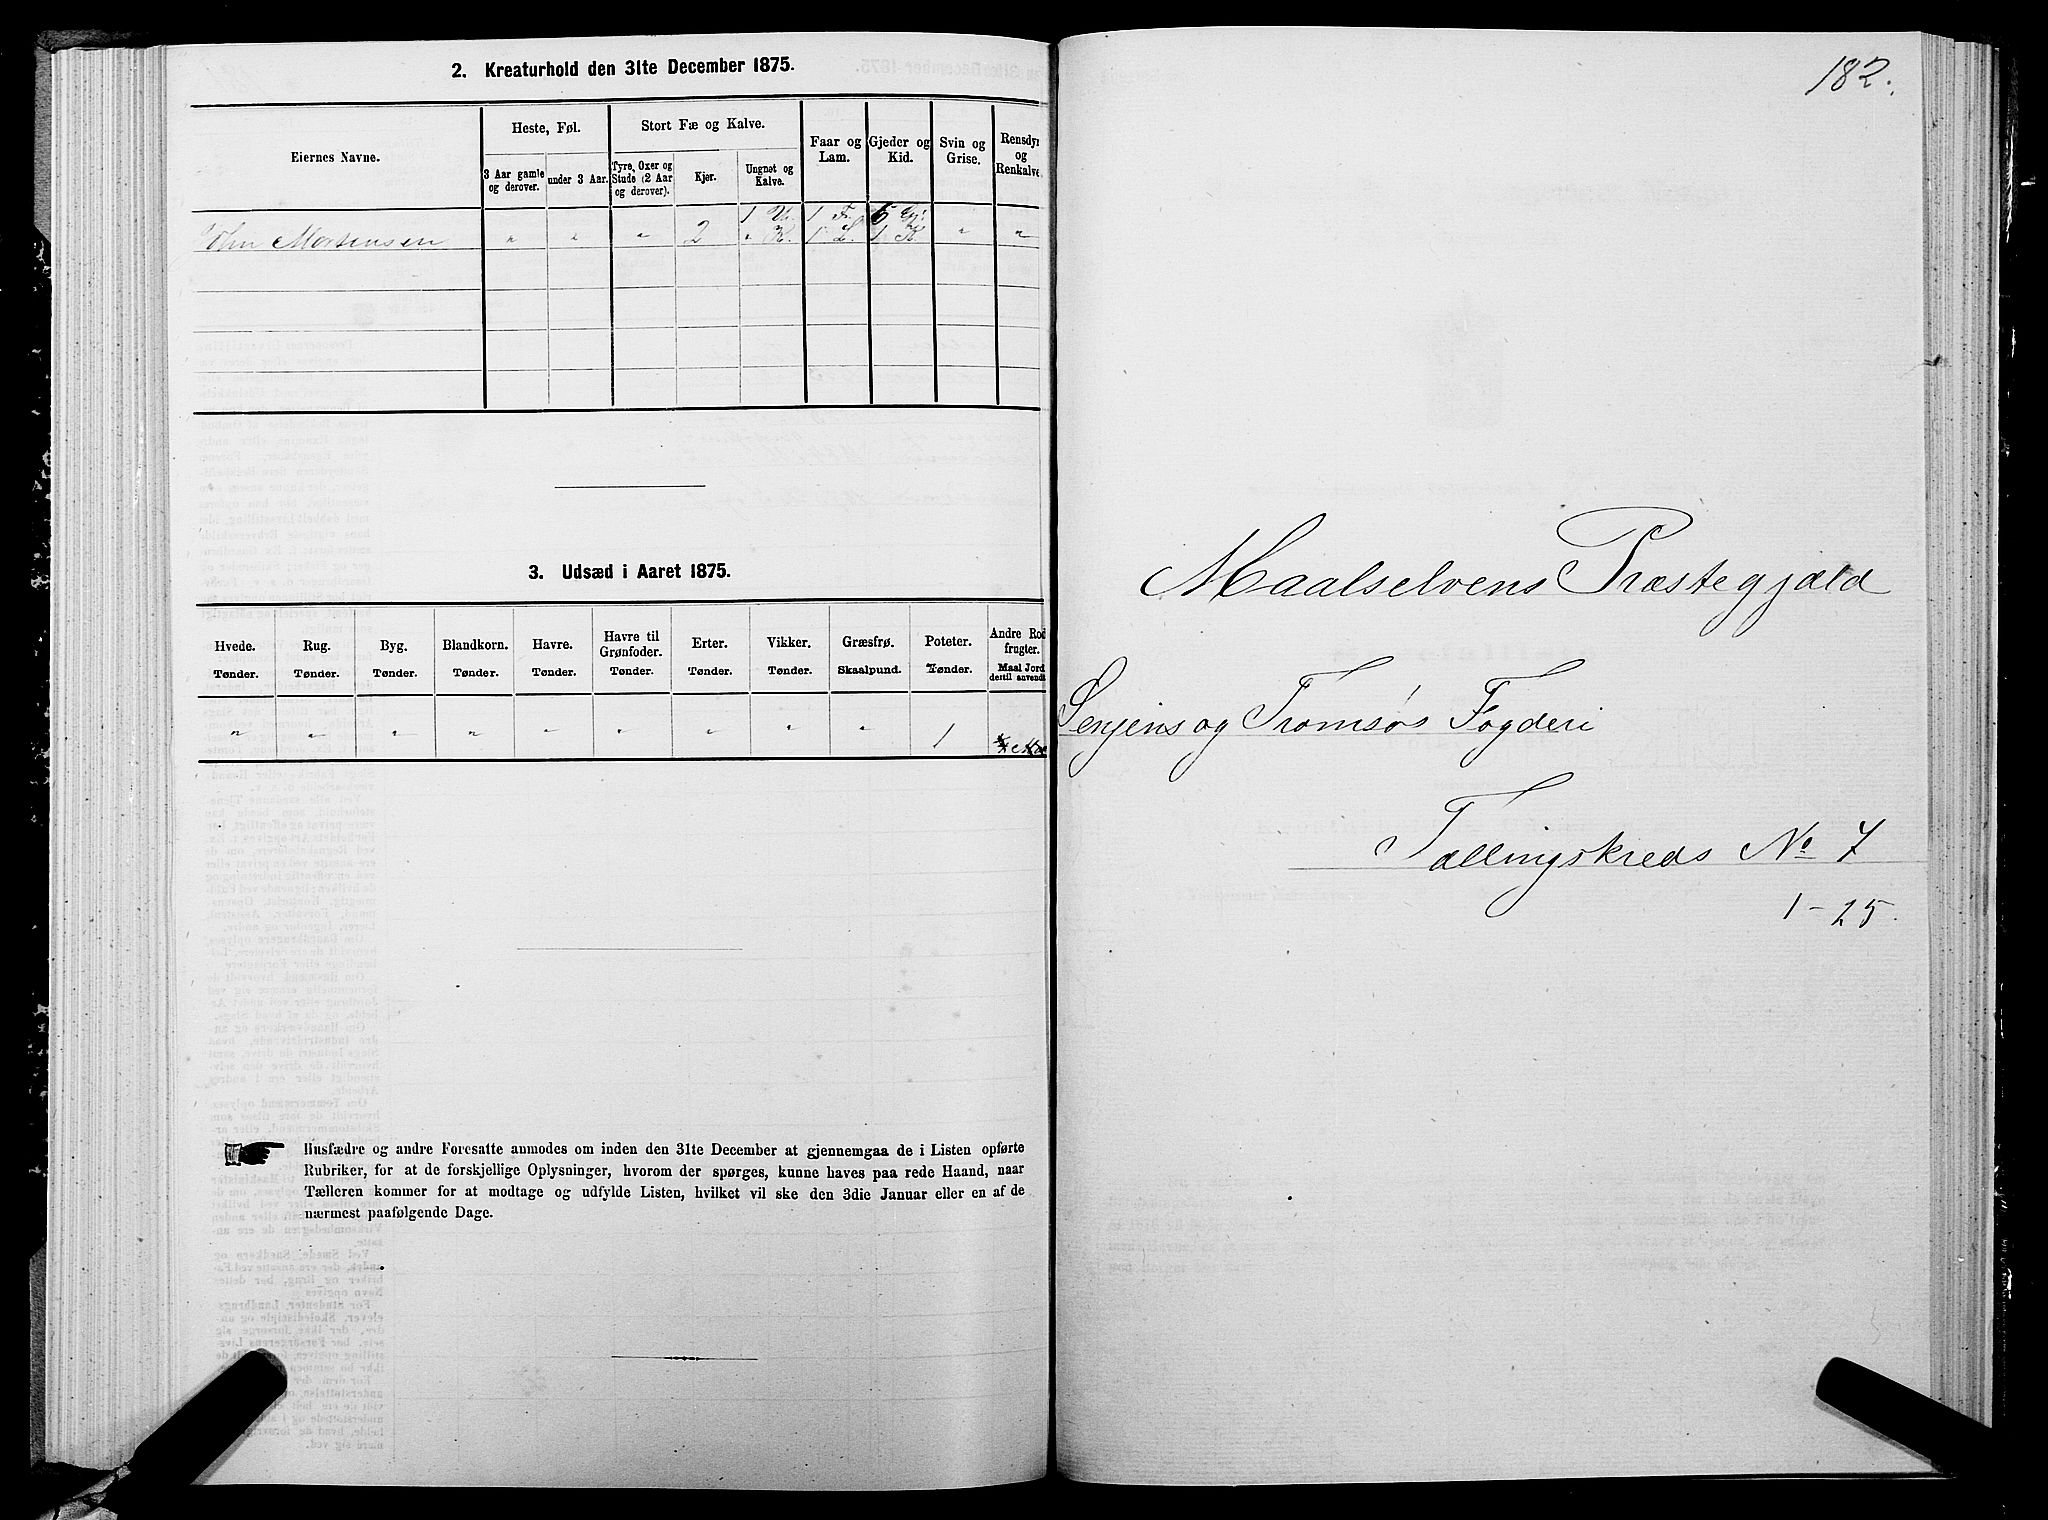 2. Kreaturhold den 31te December 1875.
Eiernes Navne.
Heste, Føl.
Stort Fæ og Kalve.
Faar og Lam.
Gjeder og Kid.
Svin og Grise.
Rensdyr og Renkalve.
3 Aar gamle og derover.
under 3 Aar.
Tyre, Oxer og Stude (2 Aar og derover).
Kjer.
Ungnøt og Kalve.
1 U. 1 F. 6 Gj.
John Mortensen " " " 2 " K. 1 L. 1 K. " "
3. Udsæd i Aaret 1875.
Hvede. Rug. Byg. Blandkorn. Havre. Havre til Grønfoder. Erter. Vikker. Græsfrø. Poteter. Andre Rodfrugter.
Tønder. Tønder. Tønder. Tønder. Tønder. Tønder. Tønder. Tønder. Skaalpund. Tønder. Maal Jord dertil anvendt
" " " " " " " " " 1
Husfædre og andre Foresatte anmodes om inden den 31te December at gjennemgaa de i Listen opførte
Rubriker, for at de forskjellige Oplysninger, hvorom der spørges, kunne haves paa rede Haand, naar
Tælleren kommer for at modtage og udfylde Listen, hvilket vil ske den 3die Januar eller en af de
nærmest paafølgende Dage.
182.
Maalselvens Præstegjæld
Senjens og Tromsøs Fogderi
Tællingskreds No 7
1-25.